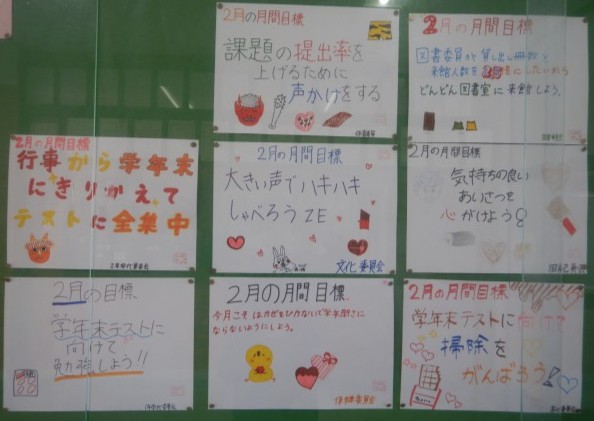 2月の月間目標
課題の提出率を
上げるために
声かけをする
2月の月間目標
図書委員が貸し出し冊数と
来館人数を
どんどん図書室に来館しよう。
2月の月間目標
行事から学年末
にきりかえて
テストに全集中
2月の月間目標
大きい声でハキハキ
しゃべろうZE
文化委員会
2月の月間目標
気持ちの良い
あいさつを
心がけよう
2月の目標
学年末テストに
向けて
勉強しよう!!
2月の月間目標
今月こそはかぜをひかないで学年閉さに
ならないようにしよう。
保健委員会
2月の月間目標
学年末テストに向けて
掃除を
がんばろう!